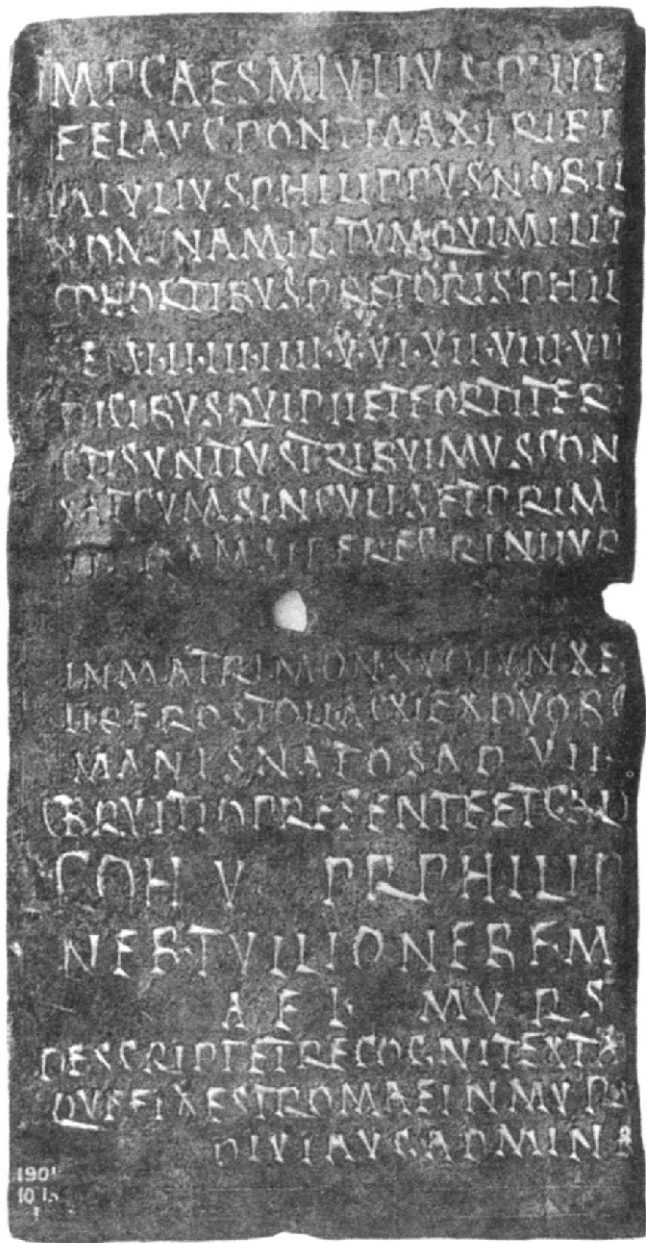 IMPCAESMIVLIVSPHIL
FELAVGPONTMAXTRIBP
MIVLIVSPHILIPPVSNOBIL
NOMINAMILITVMQVIMILIT
COHORTIBVSPRETORISPHIL
I·II·III·IIII·V·VI·VII·VIII·VII
PIISIBVSQVIPIIETFORTITER
CTISVNTIVSTRIBVIMVSCON
XATCVMSINGVLISETPRIM
PEREGRINIIVR
INMATRIMONSVOIVNXE
LIBEROSTOLLACXIEXDVOBC
MANISNATOSAD VII
CBRVITIOPRESENTEETCALI
COH V PRPHILIP
NEBTVILIONEBFM
AEL MVRS
DESCRIPTETRECOGNITEXTA
QVEFIXESTROMAEINMVR
DIVIAVGADMINR
1901